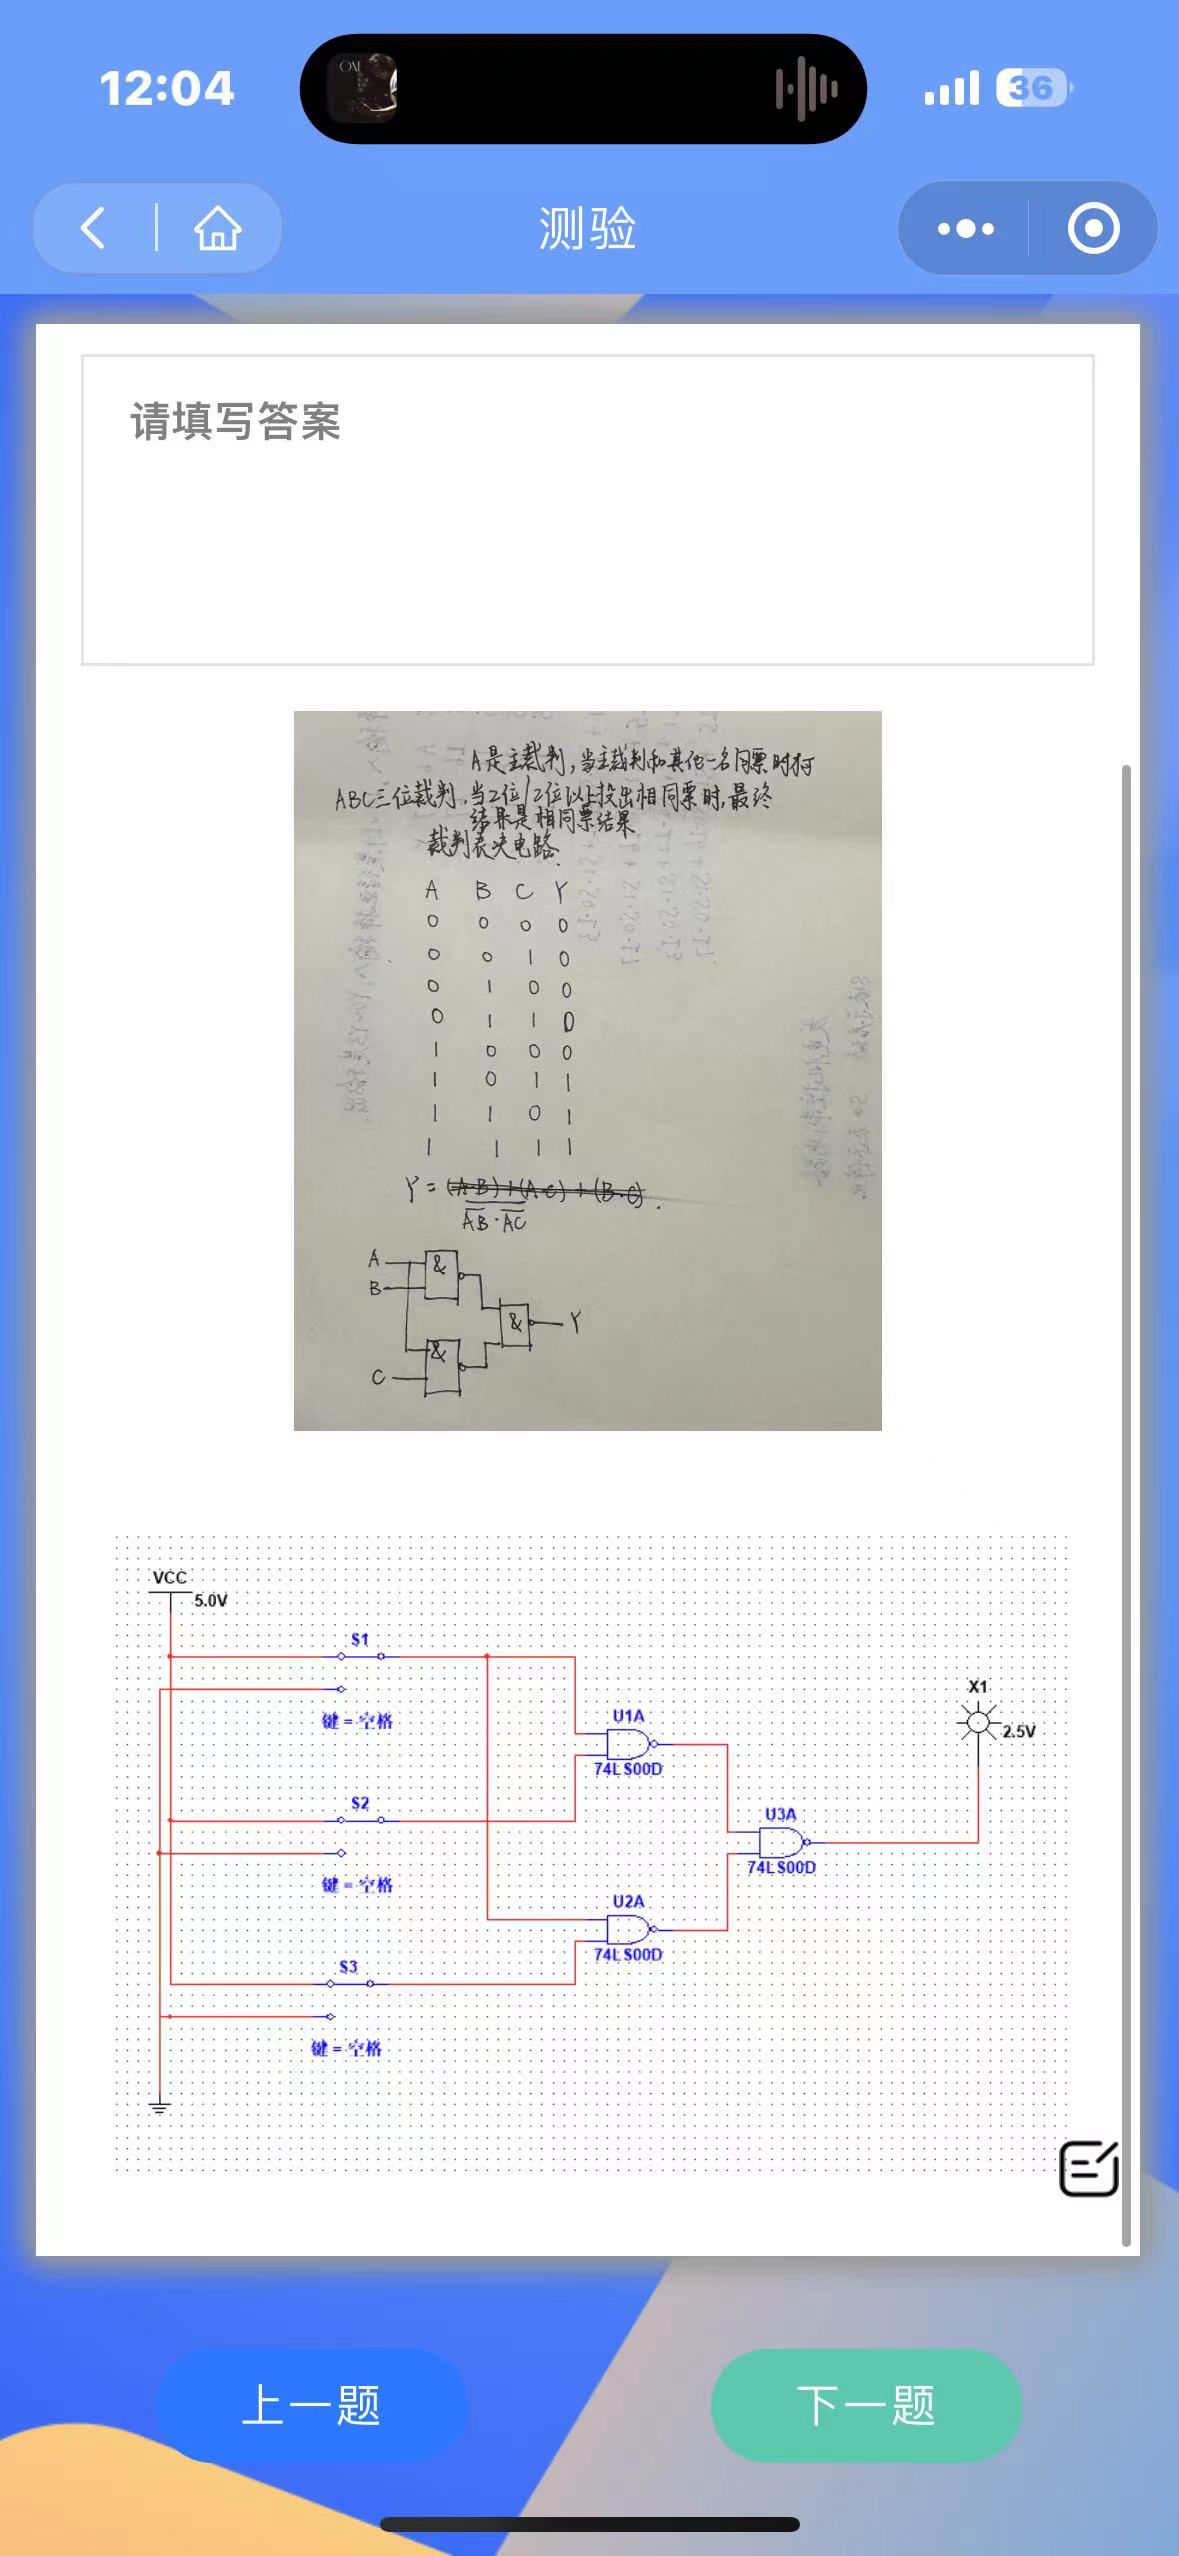 12:04
36
测验
请填写答案
A是主裁判,当主裁判和其他一名同票时打
ABC三位裁判,当2位/2位以上投出相同票时,最终
结果是相同票结果
裁判表决电路.
A B C Y
0 0 0 0
0 0 1 0
0 1 0 0
0 1 1 0
1 0 0 0
1 0 1 1
1 1 0 1
1 1 1 1
Y = (A·B)+(A·C)+(B·C).
AB·AC
A
&
B
&
Y
&
C
VCC
5.0V
S1
键 = 空格
X1
2.5V
U1A
74LS00D
S2
键 = 空格
U3A
74LS00D
U2A
74LS00D
S3
键 = 空格
上一题
下一题